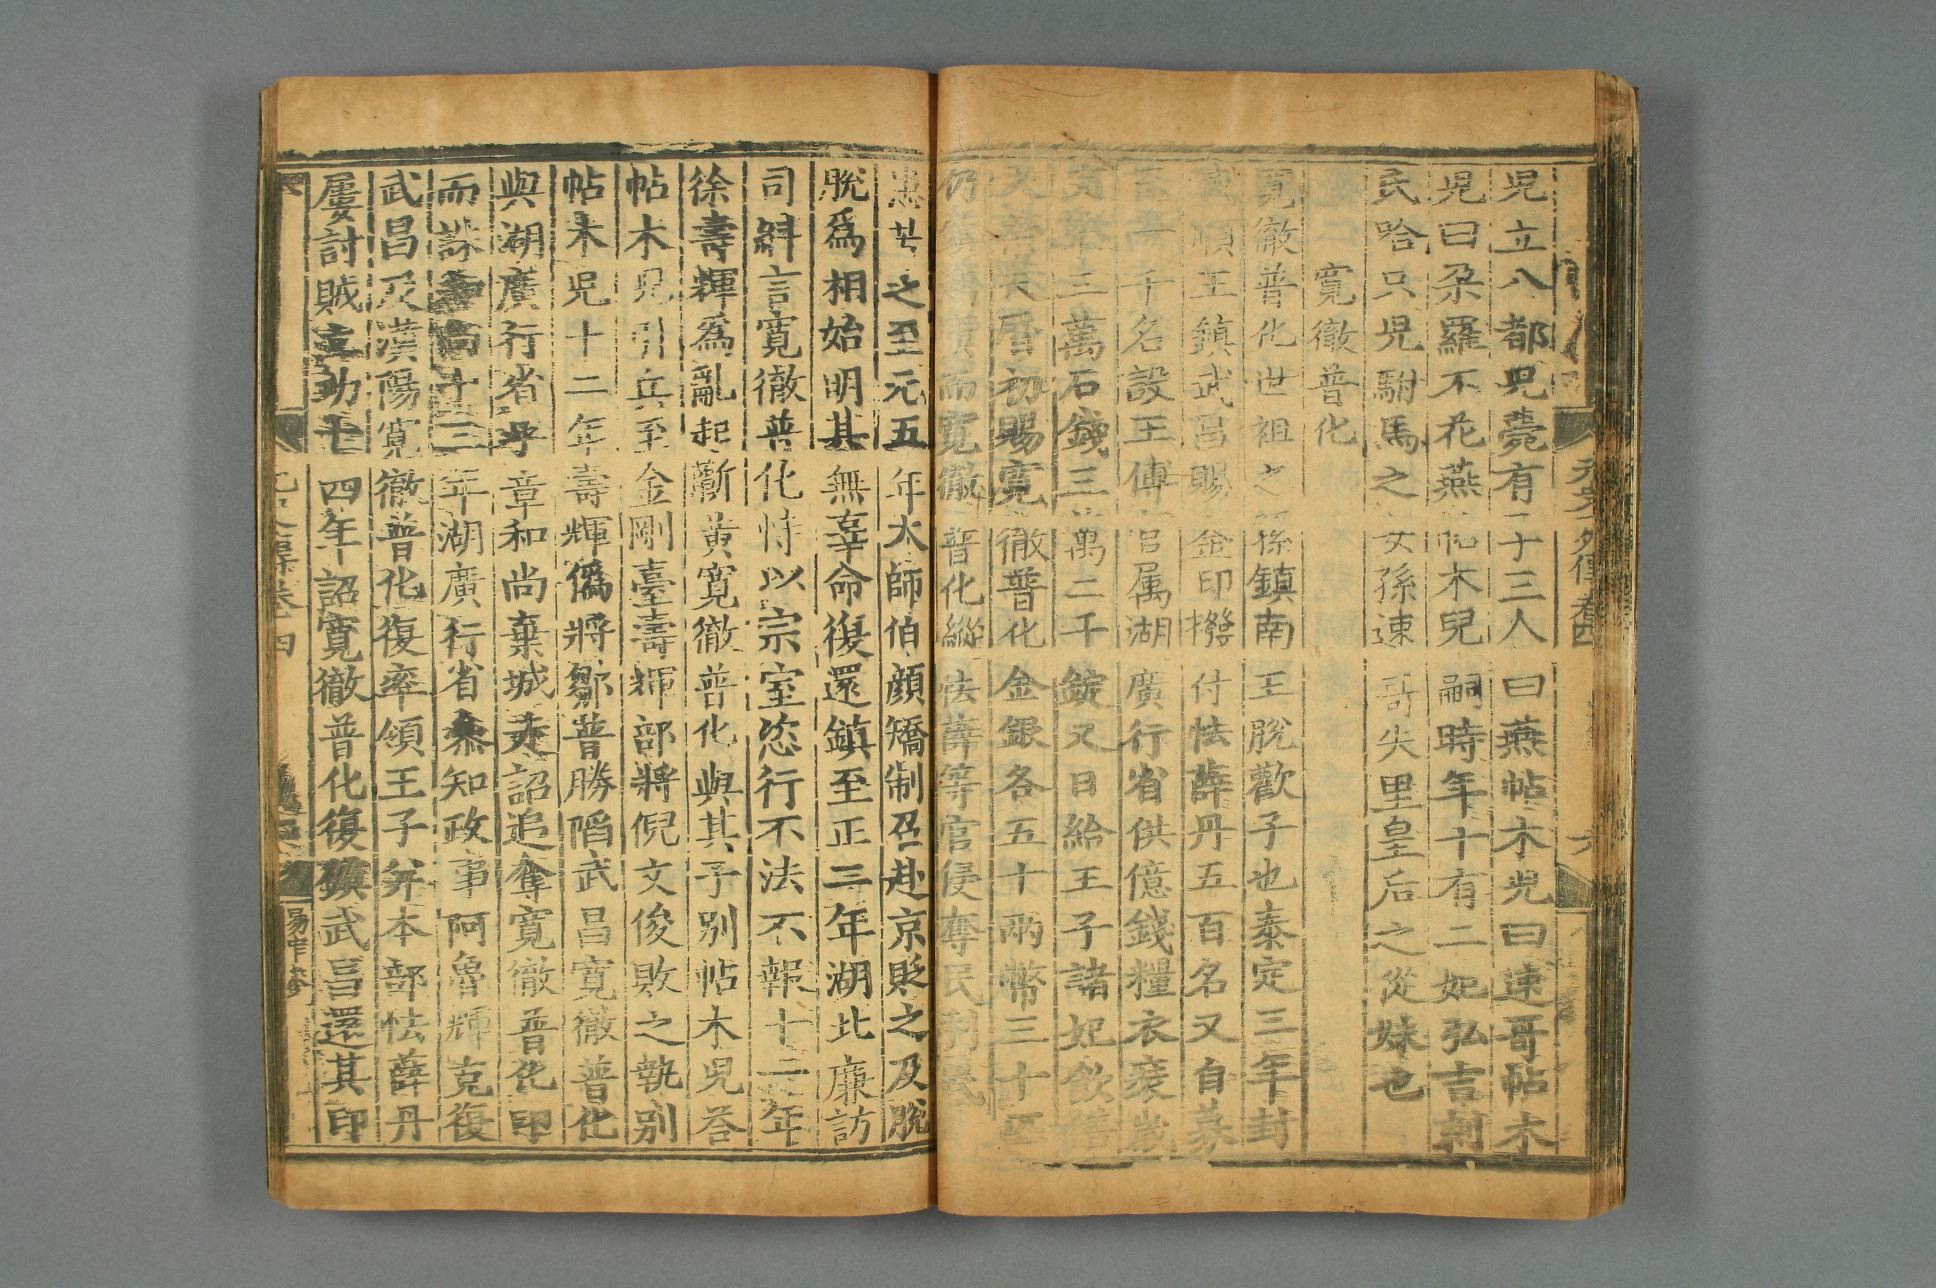 元史 列傳卷四 六
児立八都児薨有子三人曰燕帖木児曰速哥帖木
児曰朶羅不花燕帖木兒嗣時年十有二妃弘吉剌
氏哈只児駙馬之女孫速哥失里皇后之從妹也
寬徹普化
寬徹普化世祖之孫鎮南王脫歡子也泰定三年封
威順王鎮武昌賜金印撥付怯薛丹五百名又自募
至一千名設王傅官属湖廣行省供億錢糧衣裘歲
支米三萬石錢三萬二千錠又日給王子諸妃飲膳
天曆初賜寬徹普化金銀各五十兩幣三十匹
仍鎮而寬徹普化縱怯薛等官侵奪民利
患苦之至元五年太師伯顏矯制召赴京貶之及脫
脫爲相始明其無辜命復還鎮至正二年湖北廉訪
司糾言寬徹普化恃以宗室恣行不法不報十二年
徐壽輝爲亂起蘄黃寬徹普化與其子別帖木児荅
帖木児引兵至金剛臺壽輝部將倪文俊敗之執别
帖木児十二年壽輝僞將鄒普勝陷武昌寬徹普化
與湖廣行省平章和尚棄城走詔追奪寬徹普化印
而誅和尚十三年湖廣行省參知政事阿魯輝克復
武昌及漢陽寬徹普化復率領王子幷本部怯薛丹
屢討賊立功十四年詔寬徹普化復鎮武昌還其印
卷四